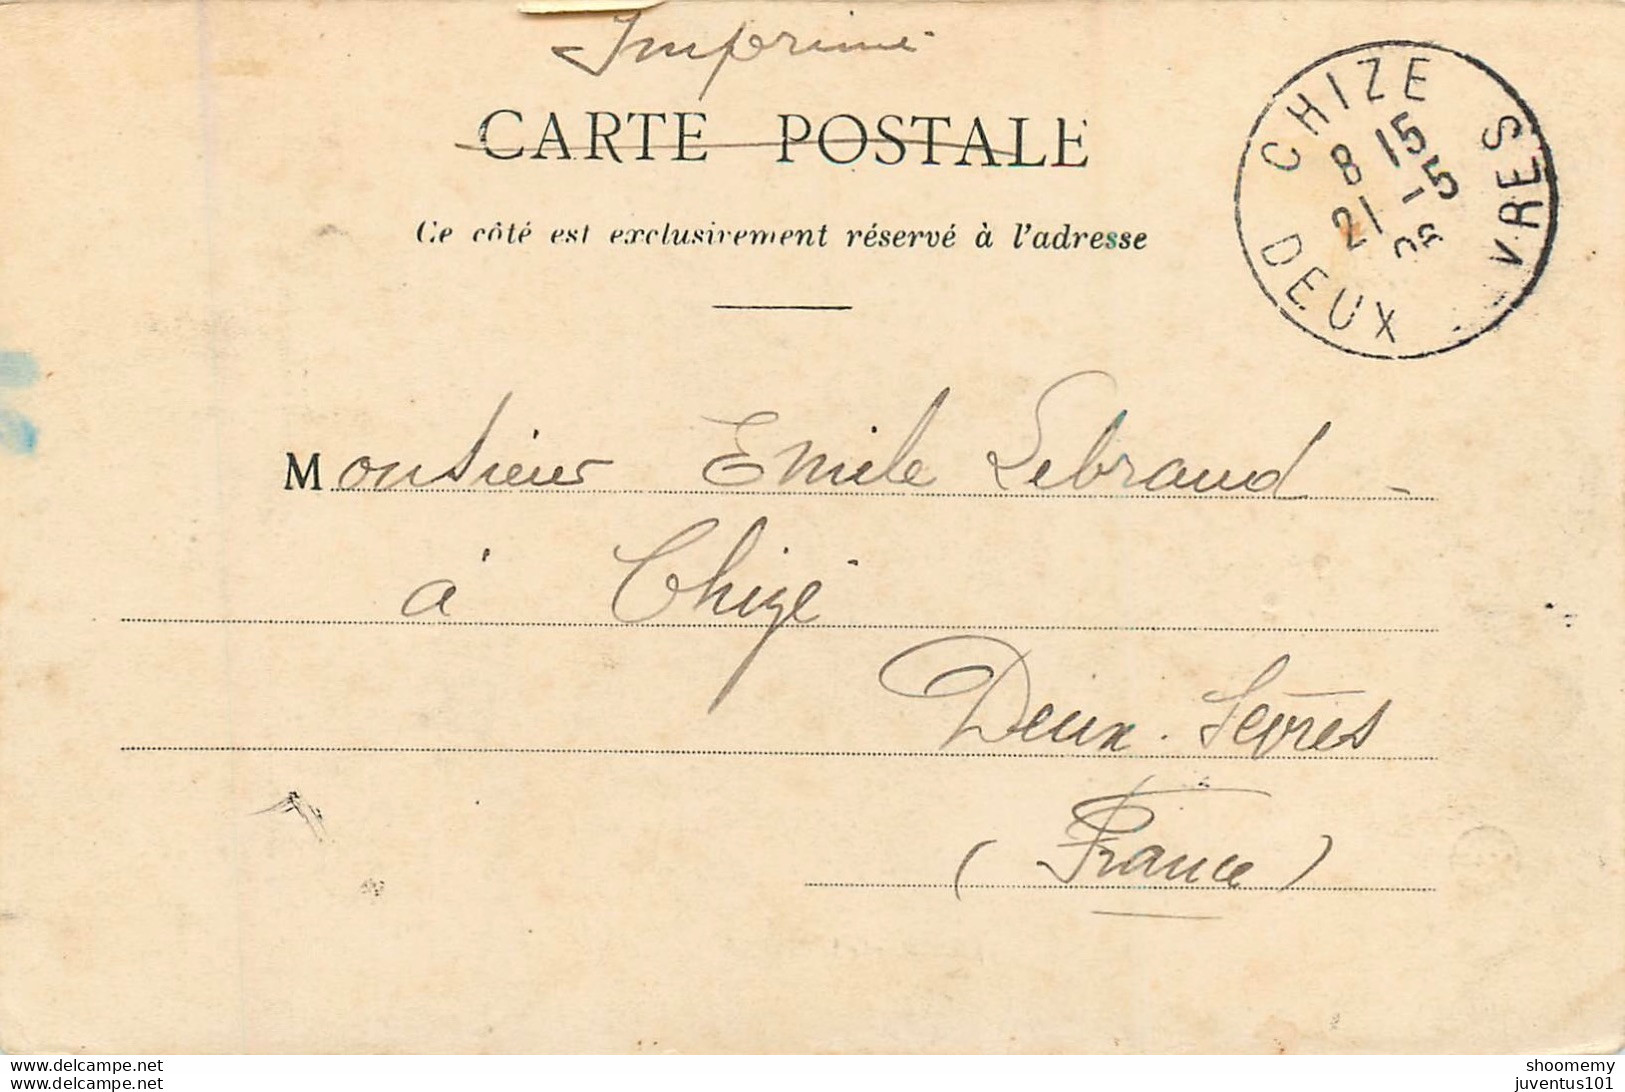 Imprimé
CARTE POSTALE
Ce côté est exclusivement réservé à l'adresse
CHIZE
8 15
21 -5
DEUX VRES
Monsieur Emile Lebraud
à Chizé
Deux-Sèvres
(France)
delcampe.net
delcampe.net
shoomemy
juventus101